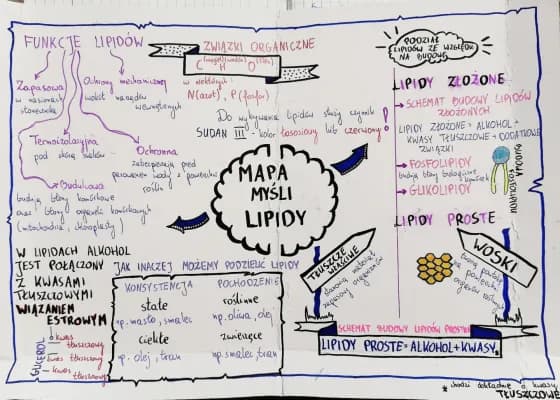 FUNKCJE LIPIDÓW
Zapasowa
w nasionach
słonecznika
Ochrony mechanicznej
wokół narządów
wewnętrznych
Termoizolacyjna
pod skórą
Ochronna
zapobiegają
parowaniu wody z powierzchni
roślin
Budulcowa
budują błony komórkowe
oraz błony organelli komórkowych
(mitochondria, chloroplasty)
ZWIĄZKI ORGANICZNE
C H O
w niektórych:
N(azot), P(fosfor)
Do wykrywania lipidów służy czynnik
SUDAN III - kolor łososiowy lub czerwony!
MAPA
MYŚLI
LIPIDY
PODZIAŁ
LIPIDÓW ZE WZGLĘDU
NA BUDOWĘ
LIPIDY ZŁOŻONE
→ SCHEMAT BUDOWY LIPIDÓW
ZŁOŻONYCH
LIPIDY ZŁOŻONE = ALKOHOL +
KWASY TŁUSZCZOWE + DODATKOWE
ZWIĄZKI
→ FOSFOLIPIDY
budują błony biologiczne komórek
→ GLIKOLIPIDY
BUDOWA
FOSFOLIPIDÓW
LIPIDY PROSTE
TŁUSZCZE
WŁAŚCIWE
stanowią materiał
zapasowy organizmów
WOSKI
tworzą
na powierzchni
organów roślinnych
SCHEMAT BUDOWY LIPIDÓW PROSTYCH
LIPIDY PROSTE = ALKOHOL + KWASY*
* chodzi dokładnie o kwasy
TŁUSZCZOWE
W LIPIDACH ALKOHOL
JEST POŁĄCZONY
Z KWASAMI
TŁUSZCZOWYMI
WIĄZANIEM
ESTROWYM
GLICEROL
kwas
tłuszczowy
kwas tłuszczowy
kwas
tłuszczowy
JAK INACZEJ MOŻEMY PODZIELIĆ LIPIDY
KONSYSTENCJA POCHODZENIE
stałe roślinne
np. masło, smalec np. oliwa, olej
ciekłe zwierzęce
np. olej, tran np. smalec, tran